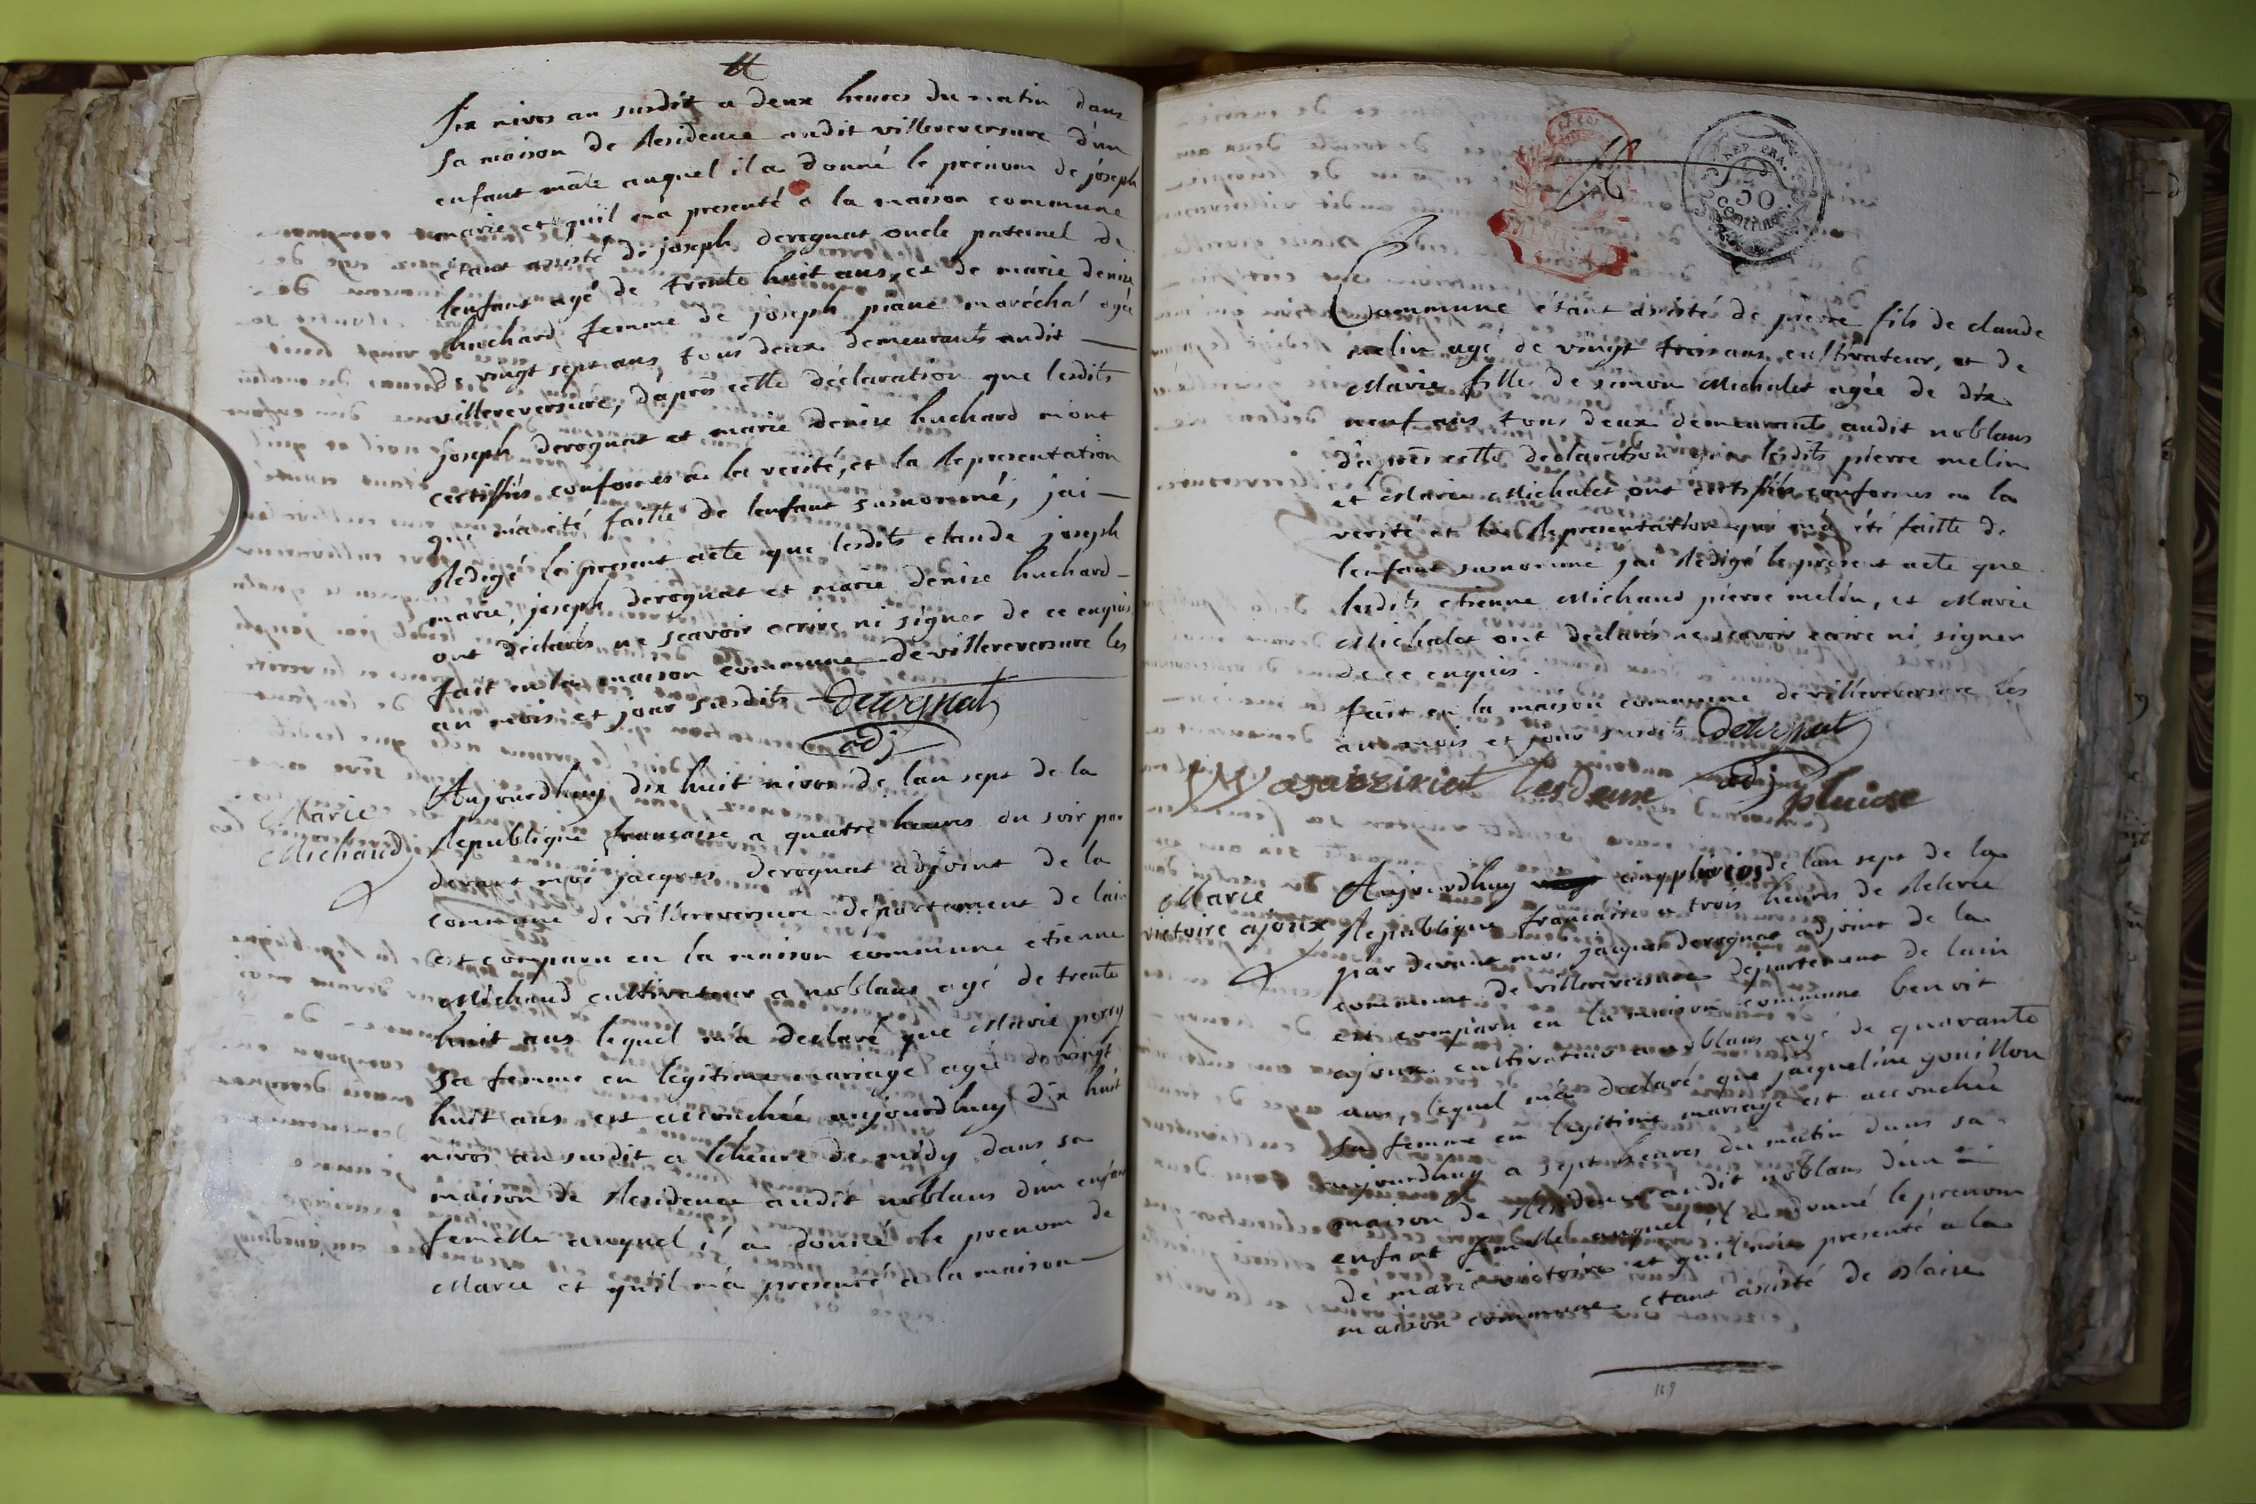 six nivos an susdit a deux heures du matin dans
sa maison de Residence audit villereversure d'un
enfant mâle auquel il a donné le prénom de joseph
marie et quil m'a presenté a la maison commune
étant assisté de joseph derognat oncle paternel de
lenfant agé de trente huit ans, et de marie denise
huchard femme de joseph piane maréchal agée
de vingt sept ans, tous deux demeurants audit
villereversure, d'après cette déclaration que lesdits
joseph derognat et marie denise huchard m'ont
certiffiés conformes a la verité, et la Representation
que m'a été faitte de lenfant susnommé, j'ai
Redigé le present acte que lesdits claude joseph
marie, joseph derognat et marie denise huchard
ont déclarés ne scavoir ecrire ni signer de ce enquis
fait en la maison commune de villereversure les
an mois et jour susdits Derognat
adj
Marie
Michaud
Aujourdhuy dix huit nivos de lan sept de la
Republique française a quatre heures du soir par
devant moi jacques derognat adjoint de la
commune de villereversure département de lain
est comparu en la maison commune etienne
Michaud cultivateur a noblans agé de trente
huit ans lequel m'a declaré que Marie
sa femme en legitime mariage agée de vingt
huit ans est accouchée aujourdhuy dix huit
nivos an susdit a lheure de midy dans sa
maison de Residence audit noblans d'un enfant
femelle auquel il a donné le prenom de
Marie et qu'il m'a presenté a la maison
REP. FRA.
50
centimes.
Commune étant assisté de pierre fils de claude
melin agé de vingt trois ans cultivateur, et de
Marie fille de simon Michalet agée de dix
neuf ans tous deux demeurants audit noblans
d'après cette declaration que lesdits pierre melin
et Marie Michalet ont certiffiés conformes a la
verité et la Representation qui m'a été faitte de
lenfant susnommé jai Redigé le present acte que
lesdits etienne Michaud pierre melin, et Marie
Michalet ont declarés ne scavoir ecrire ni signer
de ce enquis.
fait en la maison commune de villereversure les
an mois et jour susdits Derognat
adj
les deux pluiose
Marie
victoire ajoux
Aujourdhuy cinq pluvios de lan sept de la
Republique francaise a trois heures de Relevée
par devant moi jacques derognat adjoint de la
commune de villereversure Département de lain
est comparu en la maison commune benoit
ajoux cultivateur a noblans agé de quarante
ans, lequel m'a declaré que jacqueline gouillon
sa femme en legitime mariage est accouchée
aujourdhuy a sept heures du matin dans sa
maison de Residence audit noblans d'un
enfant femelle auquel il a donné le prenom
de marie victoire et quil m'a presenté a la
maison commune etant assisté de blaise
169